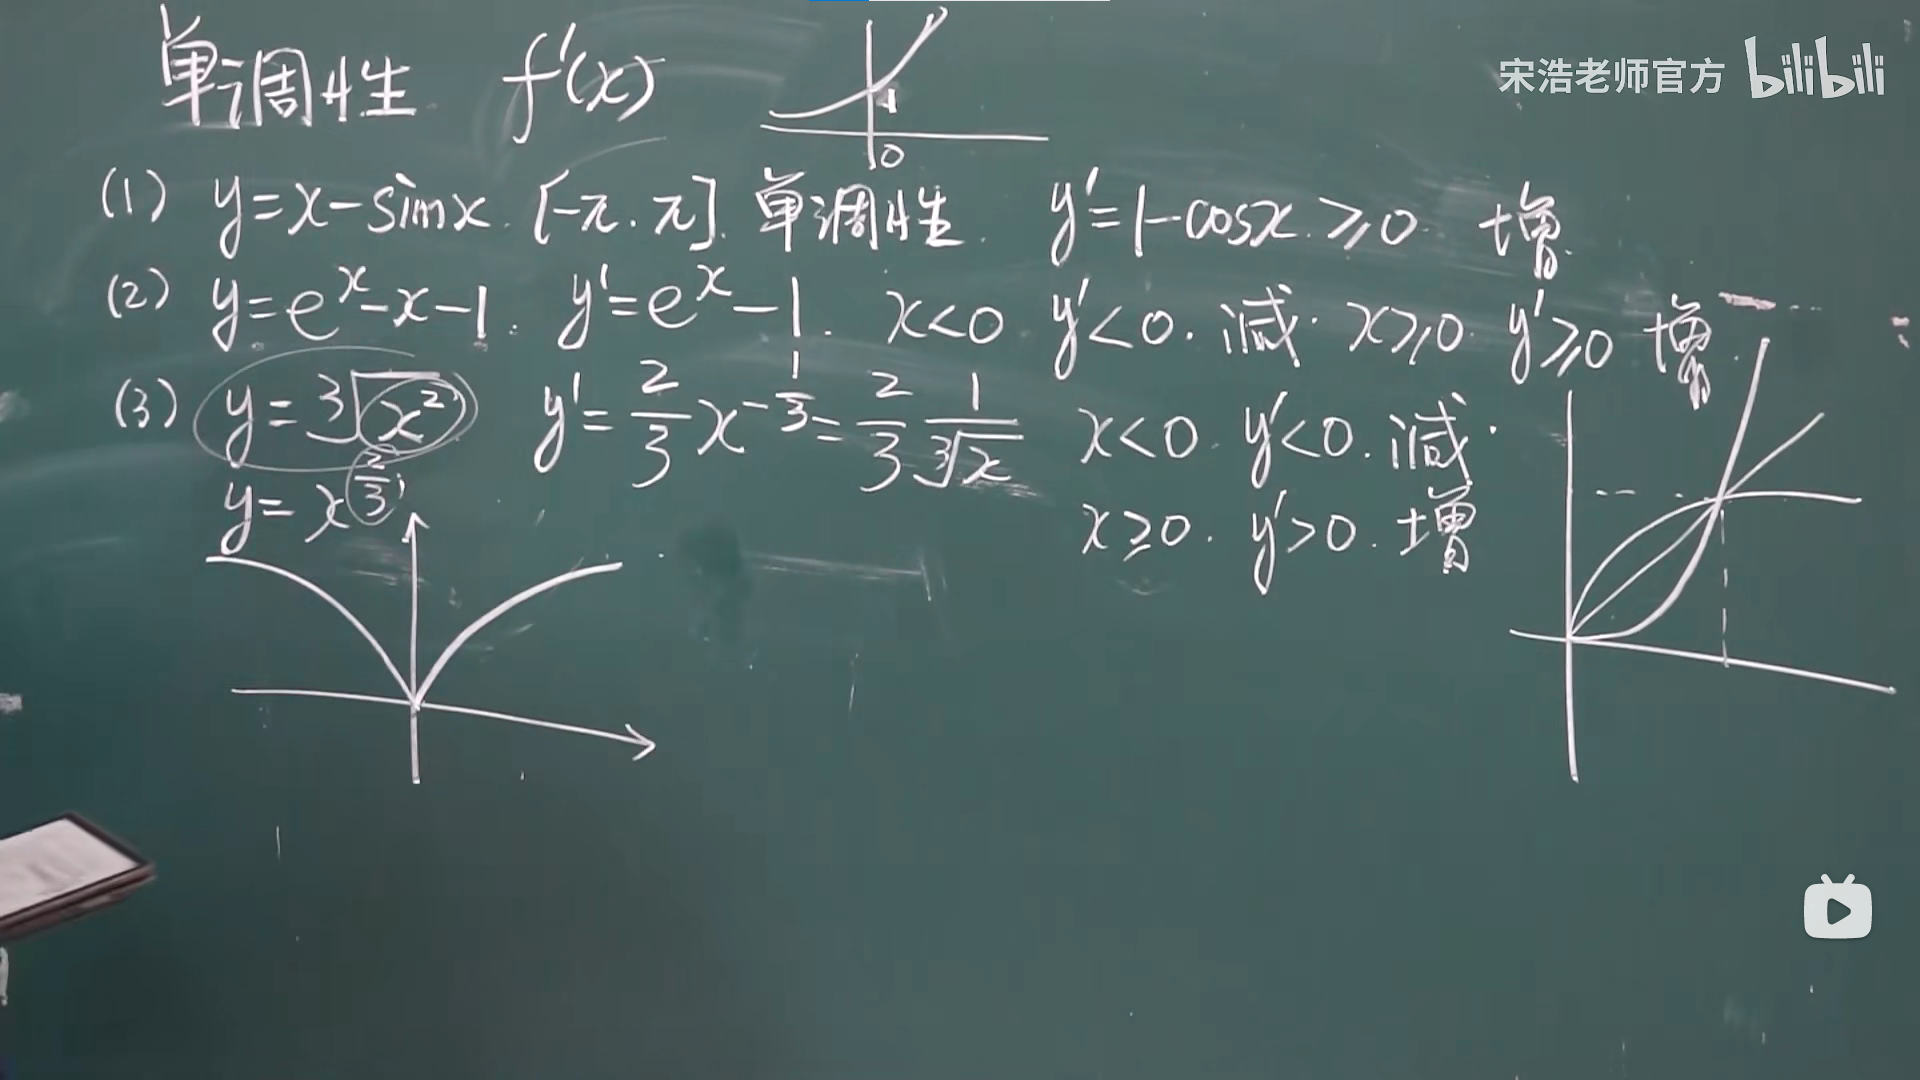 单调性 f'(x)
1
0
宋浩老师官方 bilibili
(1) y=x-sinx. [-π.π]. 单调性. y'=1-cosx.≥0. 增.
(2) y=e^x-x-1. y'=e^x-1. x<0 y'<0. 减. x≥0. y'≥0 增.
(3) y=∛(x²) y'=2/3 x^(-1/3)=2/3 1/∛x x<0. y'<0. 减.
y=x^(2/3) x≥0. y'>0. 增